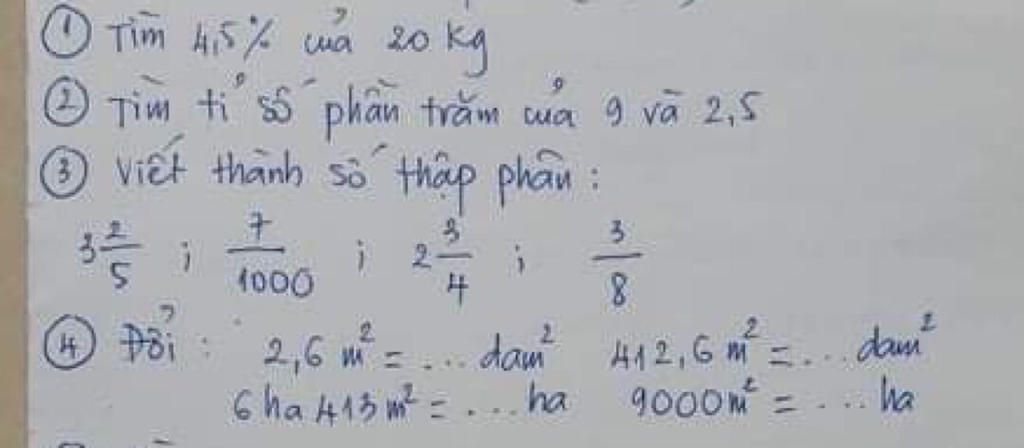 ① Tìm 4,5% của 20 kg
② Tìm tỉ số phần trăm của 9 và 2,5
③ Viết thành số thập phân :
3 2/5 ; 7/1000 ; 2 3/4 ; 3/8
④ Đổi : 2,6 m² = ... dam² 412,6 m² = ... dam²
6 ha 413 m² = ... ha 9000 m² = ... ha